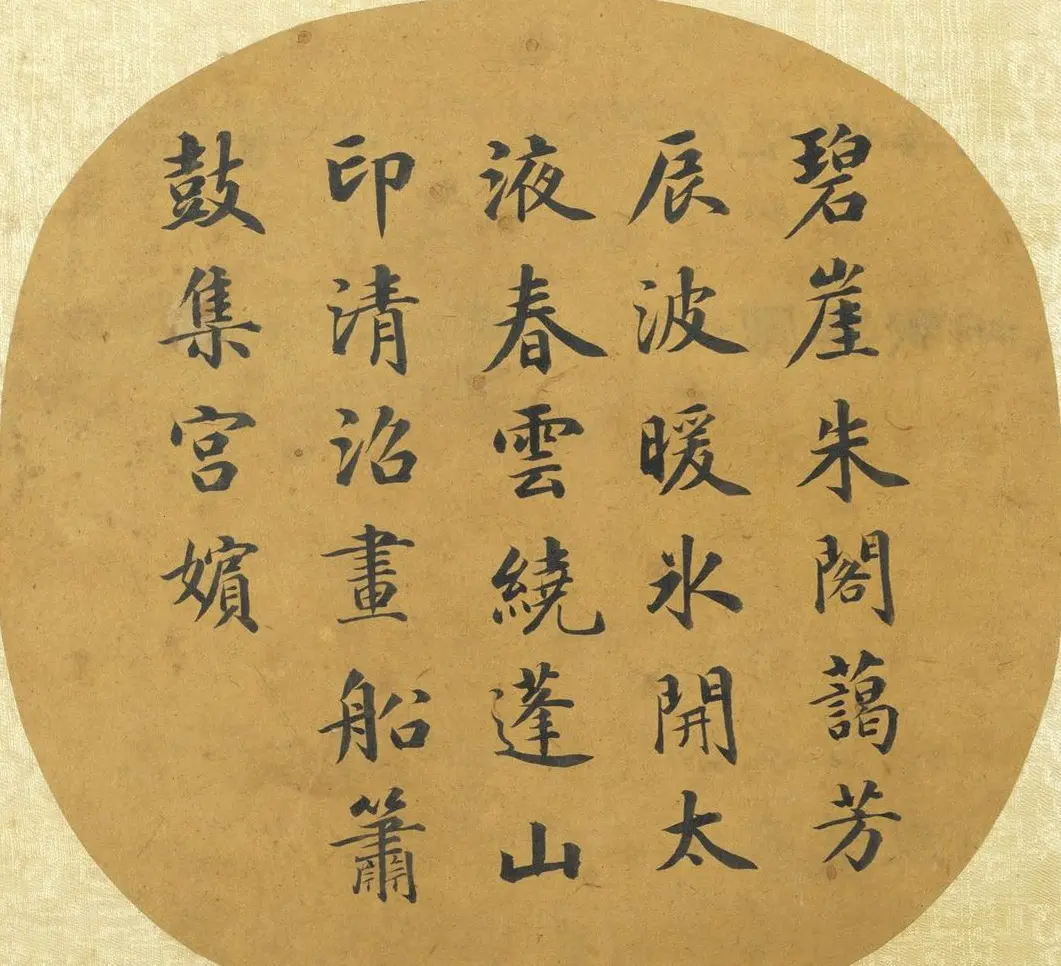 碧崖朱閣藹芳
辰波暖氷開太
液春雲繞蓬山
印清沼畫船簫
鼓集宮嬪